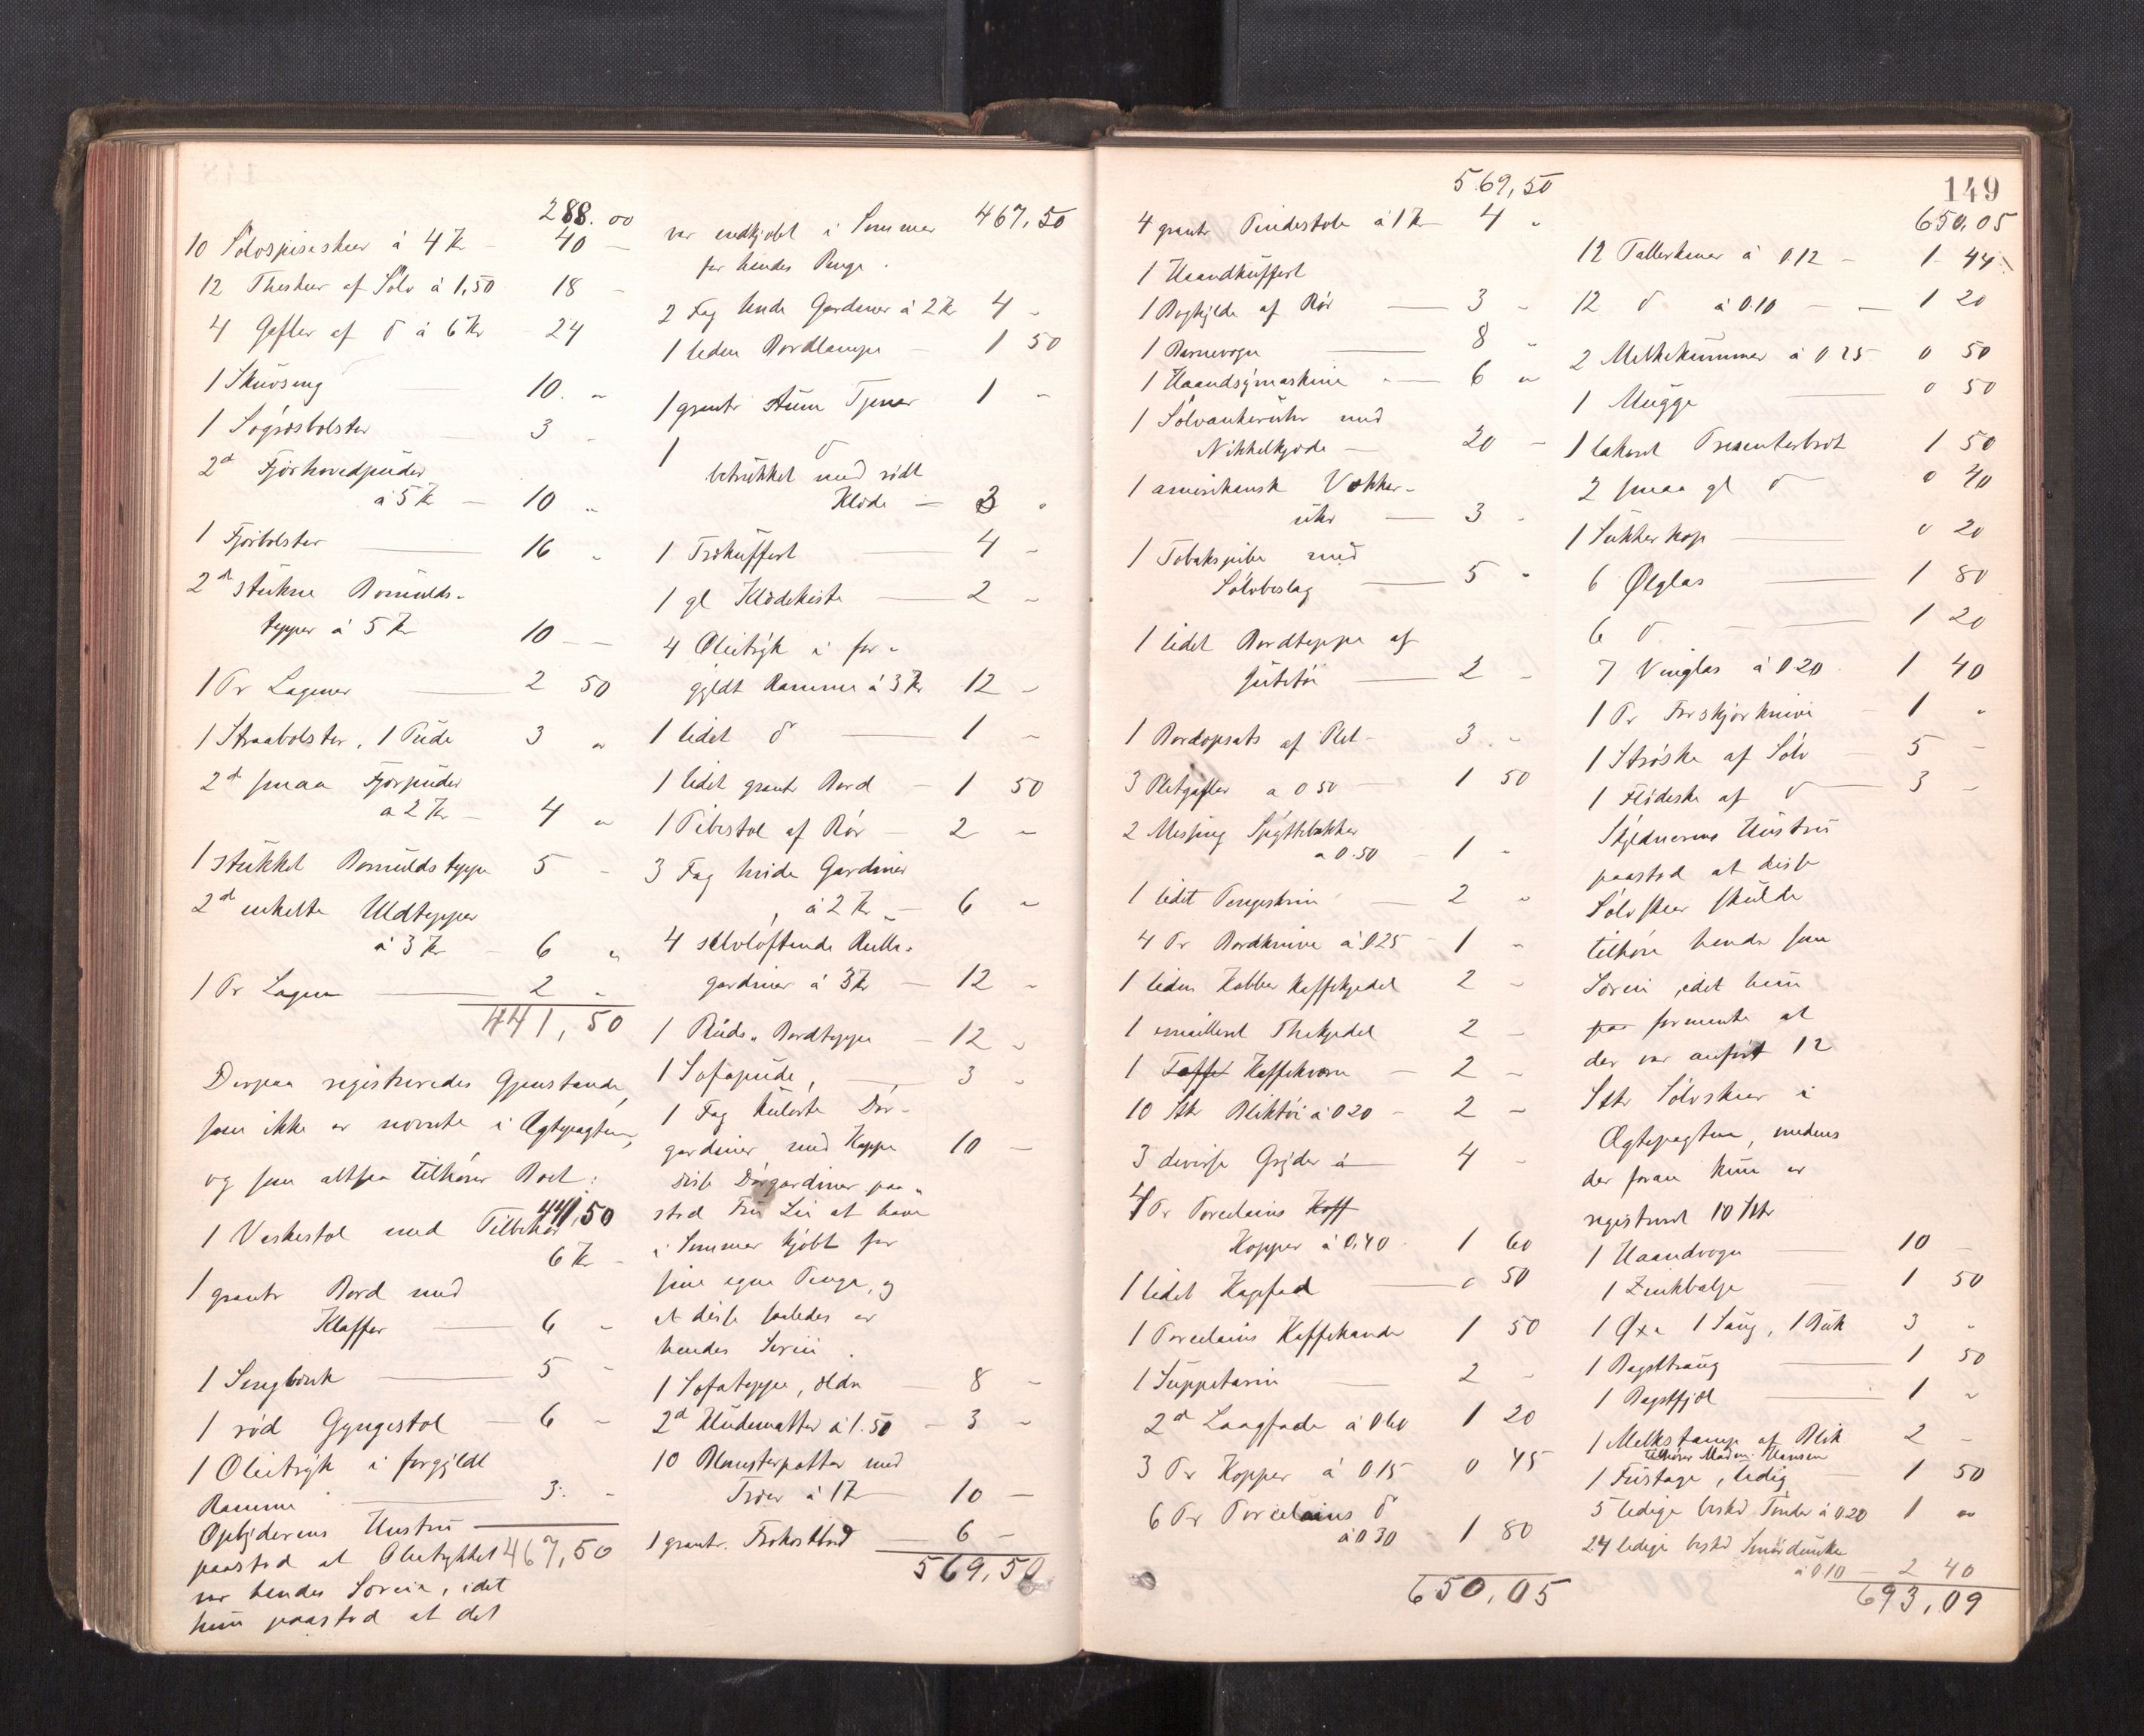 288.00
10 Sölvspiseskeer à 4 Kr — 40 —
12 Theskeer af Sölv à 1,50 18 -
4 Gafler af do à 6 Kr - 24
1 Skuvseng — 10. "
1 Søgræsbolster — 3 -
2de Fjørhovedpuder
à 5 Kr — 10 "
1 Fjørbolster — 16 "
2de stukne Bomulds-
tepper à 5 Kr 10 —
1 Pr Lagener — 2 50
1 Straabolster, 1 Pude 3 "
2de smaa Fjørpuder
a 2 Kr — 4 "
1 stukket Bomuldsteppe 5 -
2de enkelte Uldtepper
à 3 Kr — 6 "
1 Pr Lagen — 2 "
441,50
Derpaa registreredes Gjenstande,
som ikke er nævnte i Ægtepagten,
og som altsaa tilhører Boet:
441,50
1 Vaskestol med Tilbehør
6 Kr -
1 grantr Bord med
Klaffer — 6 -
1 Sengbænk — 5 -
1 rød Gyngestol — 6 -
1 Olietryk i forgyldt
Ramme — 3. -
Opbyderens Hustru
paastod at Olietrykket 467,50
var hendes Særeie, idet
hun paastod at det
var indkjøbt i Sommer 467,50
for hendes Penge.
2 Fag hvide Gardiner à 2 Kr 4 -
1 liden Bordlampe — 1 50
1 grantr stum Tjener 1 -
1 do
betrukket med rødt
Klæde — 3 "
1 Trækuffert 4 -
1 gl Klædekiste — 2 -
4 Olietryk i for-
gyldt Ramme à 3 Kr 12 -
1 lidet do — 1 -
1 lidet grantr Bord — 1 50
1 Pibestol af Rör — 2 -
3 Fag hvide Gardiner
à 2 Kr — 6 "
4 selvløftende Rulle-
gardiner à 3 Kr — 12 -
1 Pluds- Bordteppe — 12 -
1 Sofapude, — 3 -
1 Fag kulørte Dør-
gardiner med Kappe 10 —
disse Dørgardiner paa-
stod Fru Lie at have
i Sommer kjøbt for
sine egne Penge, og
at disse saaledes er
hendes Særeie.
1 Sofateppe, ældre — 8 -
2de Kludematter à 1.50 — 3 -
10 Blomsterpotter med
Træer à 1 Kr — 10 —
1 grantr. Frokostbord — 6 -
569,50
569,50
4 grantr Pindestole à 1 Kr 4 "
1 Haandkuffert
1 Boghylde af Rör — 3 -
1 Barnevogn — 8 "
1 Haandsymaskine — 6 "
1 Sölvankeruhr med
Nikkelkjæde — 20 -
1 amerikansk Vækker-
uhr — 3 -
1 Tobakspibe med
Sölvbeslag — 5 "
1 lidet Bordteppe af
Jutetøi — 2 -
1 Bordopsats af Plet — 3 . -
3 Pletgafler a 0 50 — 1 50
2 Messing Spyttebakker
a 0.50 — 1 "
1 lidet Pengeskrin — 2 "
4 Pr Bordknive à 0.25 — 1 "
1 liden Kobber Kaffekjedel 2 -
1 emailleret Thekjedel 2 -
1 Kaffekværn — 2 -
10 Stk Bliktøi à 0 20 — 2 -
3 diverse Gryder à 4 -
4 Pr Porcelains Kaff
Kopper à 0,40 1 60
1 lidet Kagefad — 0 50
1 Porcelains Kaffekande 1 50
1 Suppeterrin — 2 -
2de Laagfade à 0 60 1 20
3 Pr Kopper à 0 15 0 45
6 Pr Porcelains do
à 0 30 - 1 80
650,05
149
650,05
12 Tallerkener à 0.12 — 1 44
12 do à 0.10 — 1 20
2 Melkekummer à 0 25 0 50
1 Mugge — 0 50
1 lakeret Præsenterbræt 1 50
2 smaa gl do 0 40
1 Sukkerkop — 0 20
6 Ølglas — 1 80
6 do — 1 20
7 Vinglas à 0 20 1 40
1 Pr Forskjærknive — 1 "
1 Strøske af Sölv — 5 -
1 Flødeske af do — 3 -
Skyldnerens Hustru
paastod at disse
Sölvskeer skulde
tilhøre hende som
Særeie, idet hun
paa formente at
der var anført 12
Stkr Sölvskeer i
Ægtepagten, medens
der foran kun er
registreret 10 Stkr
1 Haandvogn — 10 -
1 Zinkbalje — 1 50
1 Øxe 1 Saug, 1 Buk 3 "
1 Bagsttraug — 1 50
1 Bagstfjøl — 1 "
1 Melkstamp af Blik 2 -
tilhører Madm. Hansen
1 Fustage, ledig — 1 50
5 ledige beskd Tønder à 0.20 1 "
24 ledige beskd Smørdunke
à 0.10 — 2 40
693,09